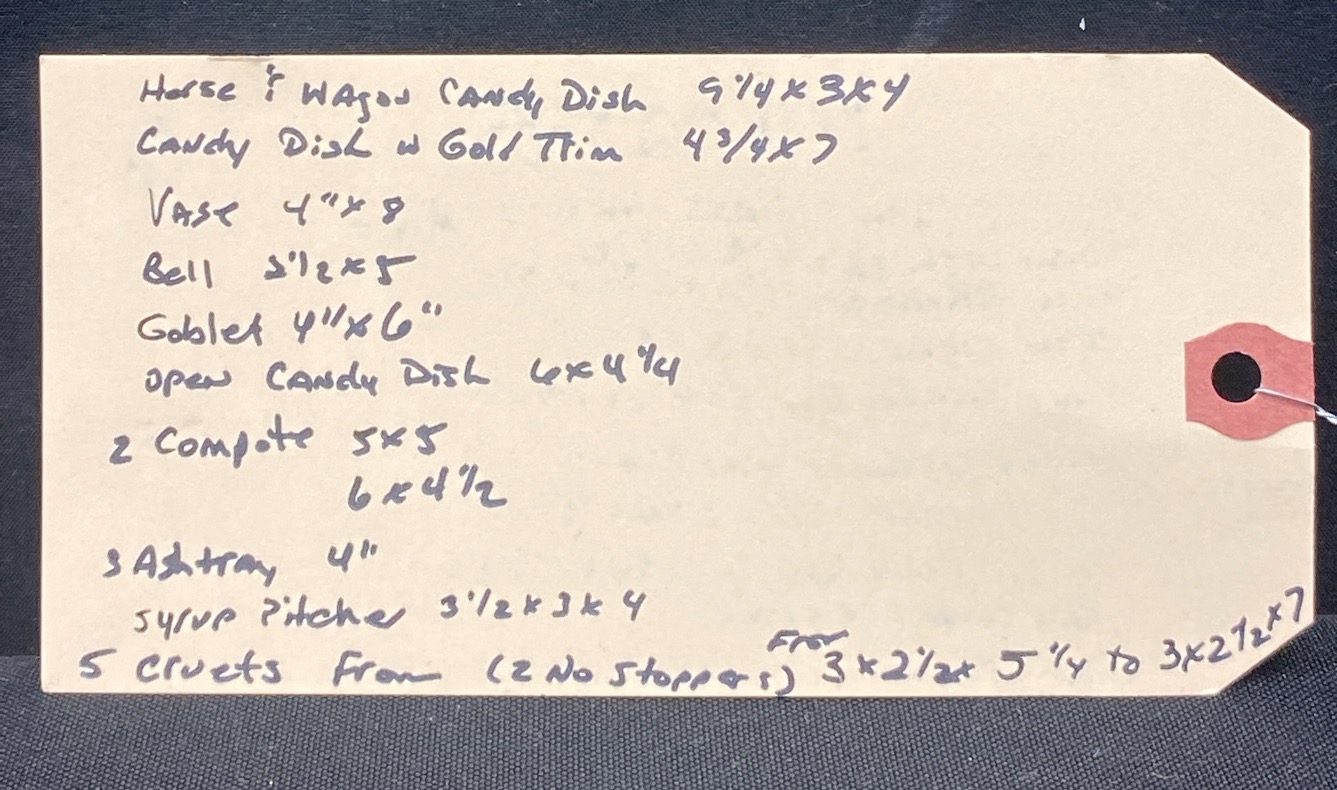 Horse & Wagon Candy Dish 9 1/4 x 3 x 4
Candy Dish w Gold Trim 4 3/4 x 7
Vase 4" x 8
Bell 3 1/2 x 5
Goblet 4" x 6"
Open Candy Dish 6 x 4 1/4
2 Compote 5 x 5
6 x 4 1/2
3 Ashtray 4"
Syrup Pitcher 3 1/2 x 3 x 4
5 Cruets From (2 No Stoppers) From 3 x 2 1/2 x 5 1/4 to 3 x 2 1/2 x 7